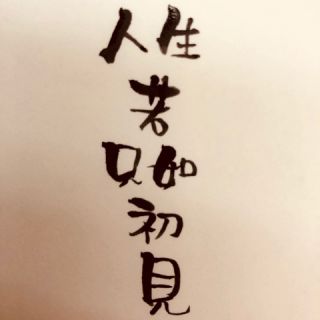 人生
若
只如
初
見